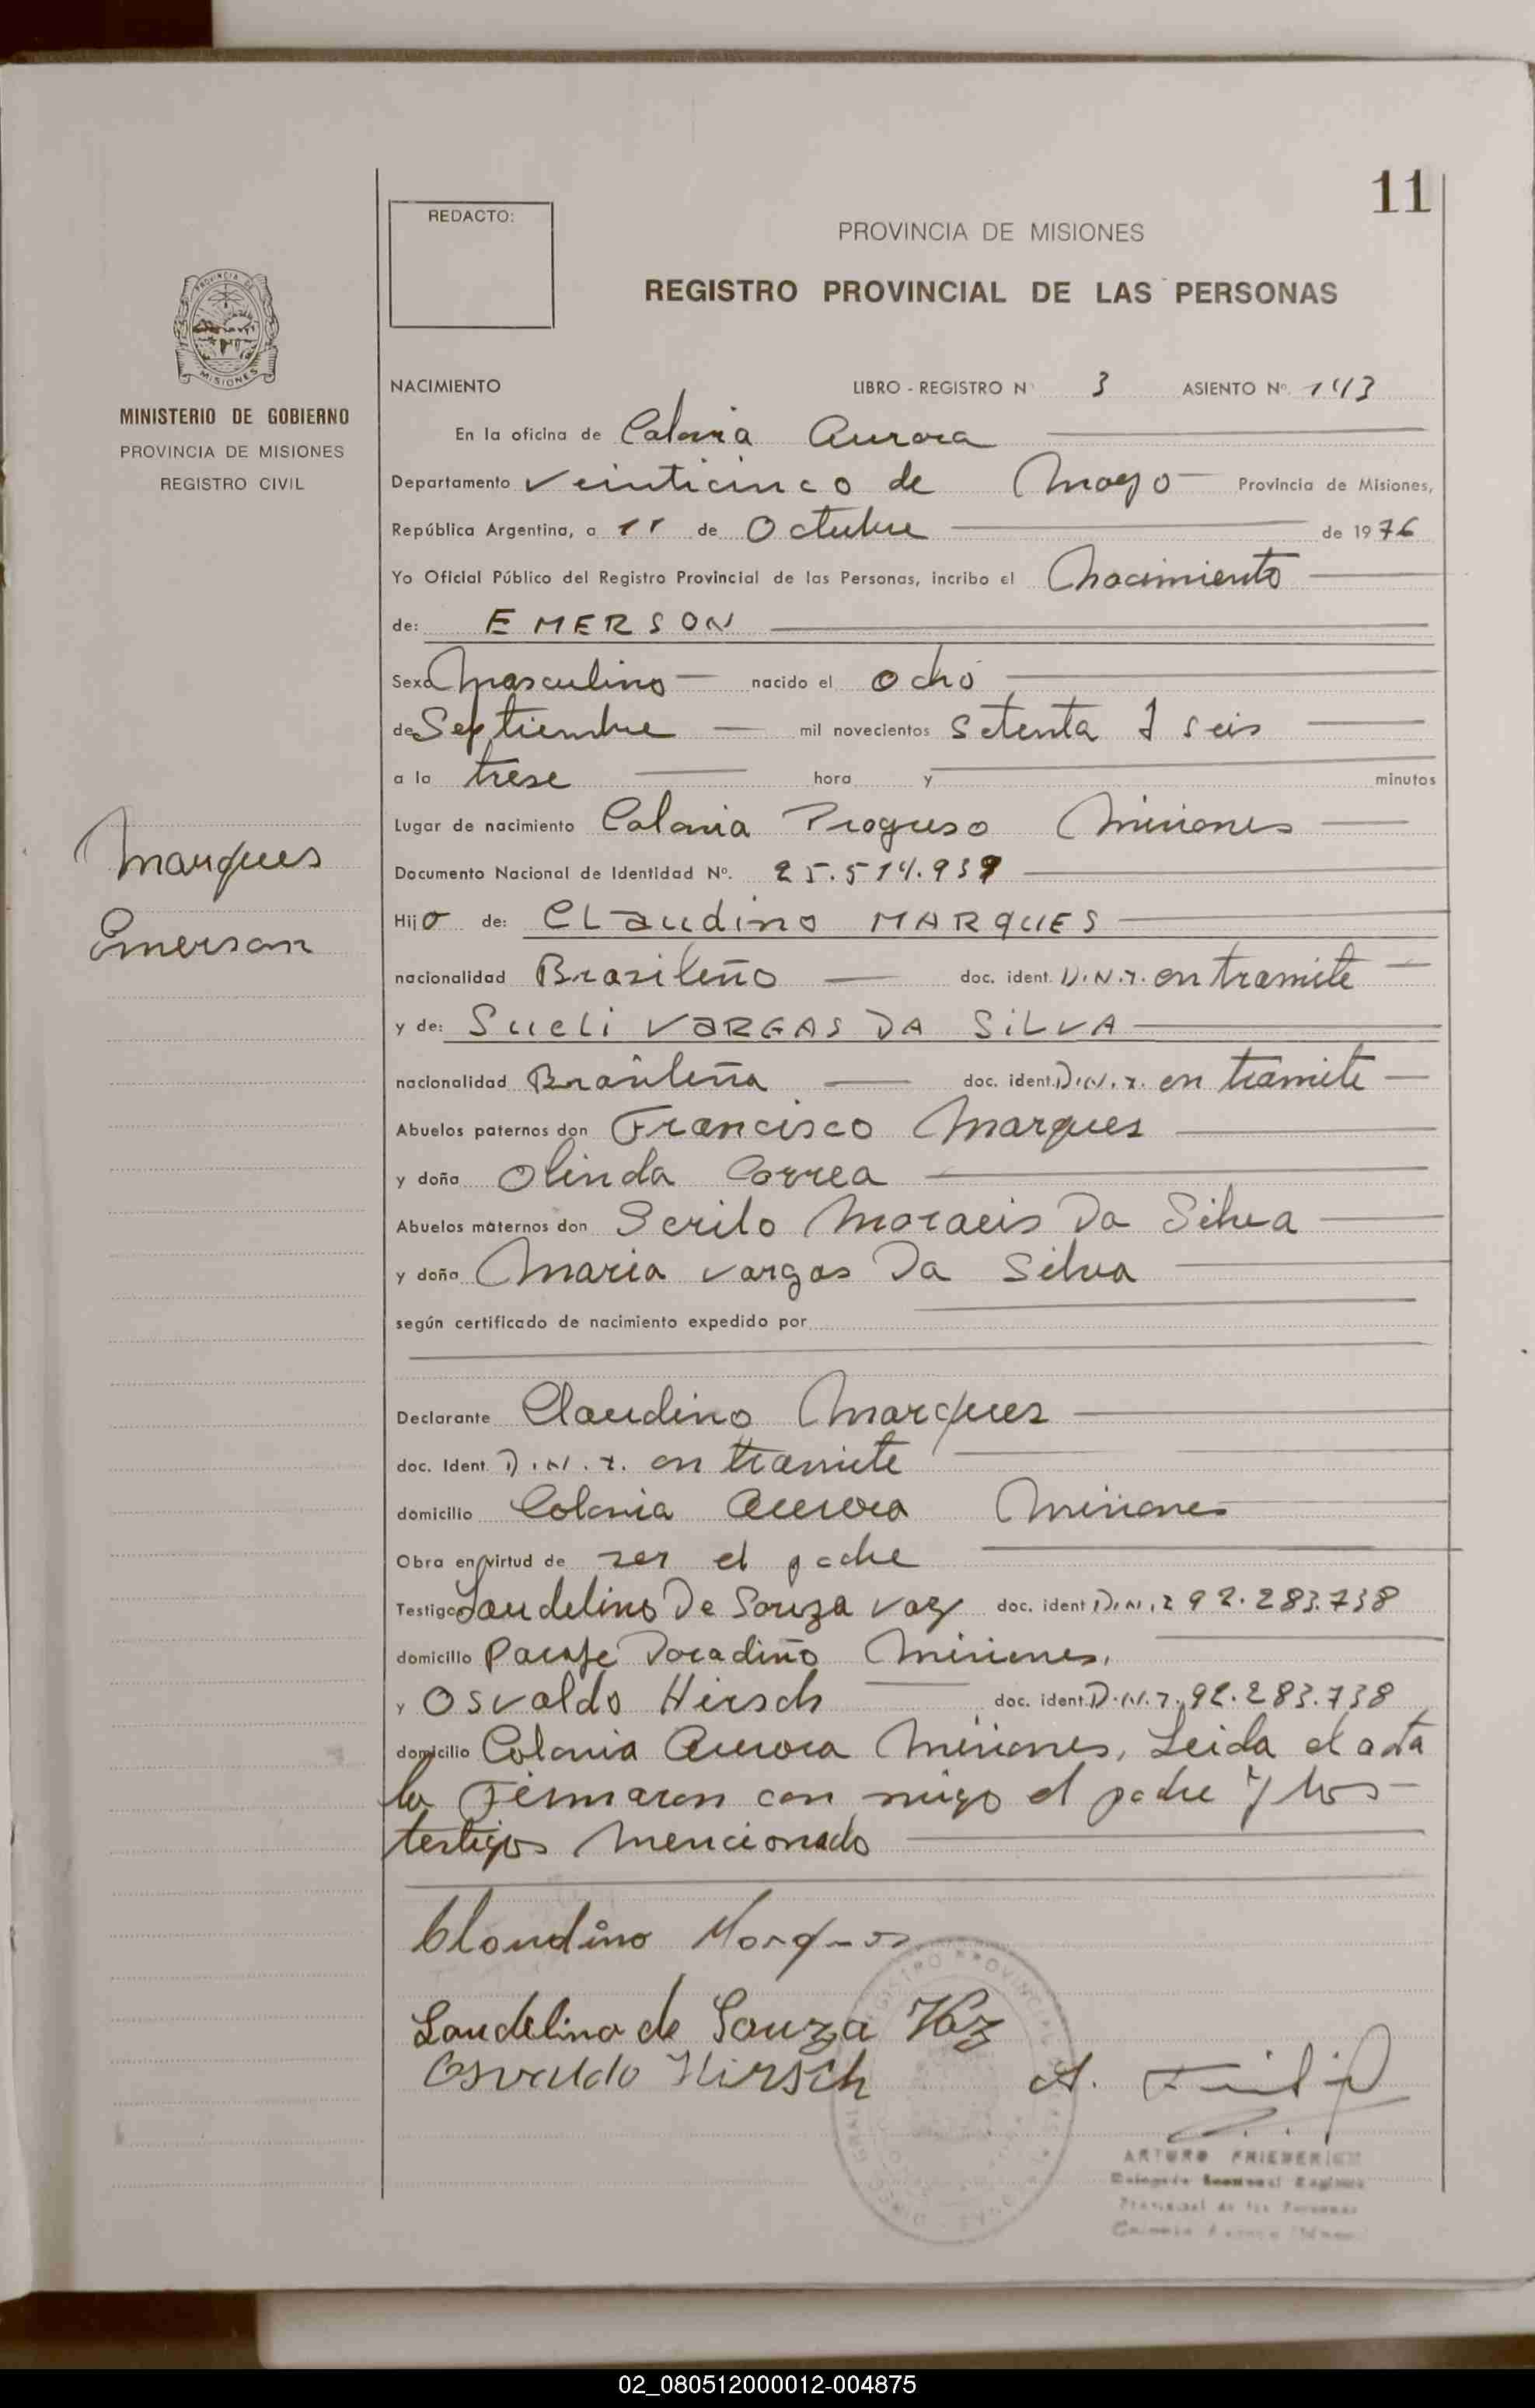 11
REDACTO:
PROVINCIA DE MISIONES
REGISTRO PROVINCIAL DE LAS PERSONAS
MINISTERIO DE GOBIERNO
PROVINCIA DE MISIONES
REGISTRO CIVIL
NACIMIENTO LIBRO - REGISTRO Nº 3 ASIENTO Nº 143
En la oficina de Colonia Aurora
Departamento Veinticinco de Mayo Provincia de Misiones,
República Argentina, a 11 de Octubre de 1976
Yo Oficial Público del Registro Provincial de las Personas, incribo el Nacimiento
de: EMERSON
Sexo Masculino nacido el ocho
de Septiembre mil novecientos setenta y seis
a la trese hora y minutos
Lugar de nacimiento Colonia Progreso Misiones
Marques
Emerson
Documento Nacional de Identidad Nº. 25.514.939
Hijo de: Claudino MARQUES
nacionalidad Brasileño doc. ident. D.N.I. en tramite
y de: Sueli VARGAS DA SiLVA
nacionalidad Brasileña doc. ident. D.N.I. en tramite
Abuelos paternos don Francisco Marques
y doña Olinda Correa
Abuelos maternos don Serilo Moraeis Da Silva
y doña Maria Vargas Da Silva
según certificado de nacimiento expedido por
Declarante Claudino Marques
doc. Ident. D.N.I. en tramite
domicilio Colonia Aurora Misiones
Obra en virtud de ser el padre
Testigos Laudelino De Souza Vaz doc. ident D.N.I 92.283.738
domicilio Paraje Doradiño Misiones,
y Osvaldo Hirsch doc. ident. D.N.I. 92.283.738
domicilio Colonia Aurora Misiones, Leida el acta
la Firmaron con migo el padre y los
testigos mencionado
Claudino Marques
Laudelino de Souza Vaz
Osvaldo Hirsch
ARTURO FRIEDERICH
02_080512000012-004875